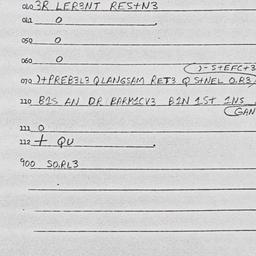 010 3R LER3NT RES+N3
011 O
050 O
060 O
)-S+EFC+3
070 )+PREB3L3 QLANGSAM RET3 Q S+NEL O.R3
110 B1S AN DR BARM1CV3 B1N 1ST 1NS
(GAN
111 O
112 + QU
900 SO.RL3